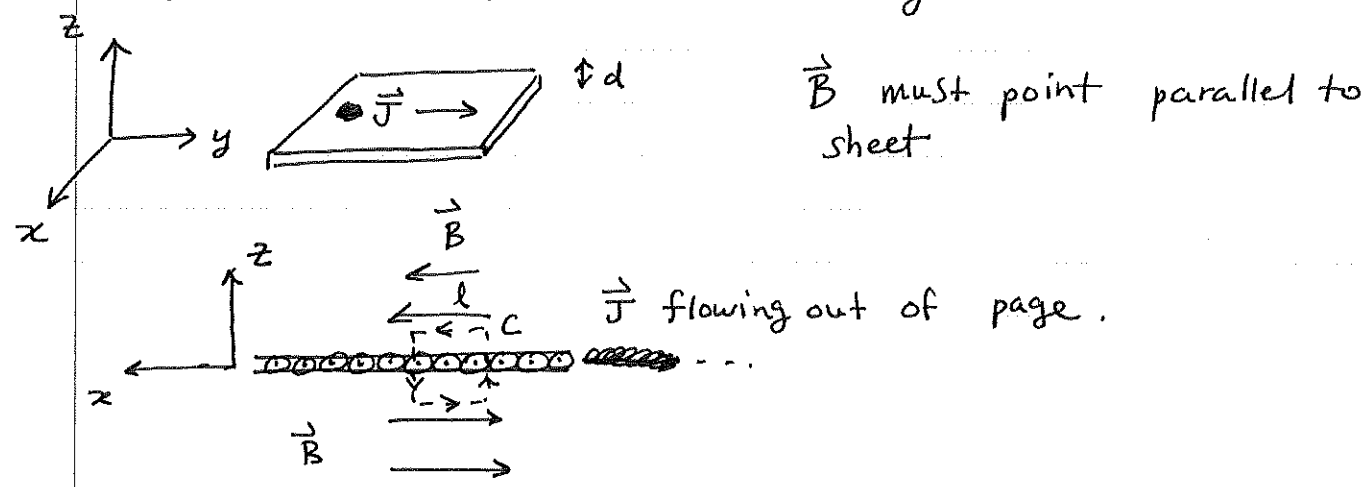 z
↕ d
J⃗ →
y
x
B⃗ must point parallel to
sheet
B⃗
z
l
C
J⃗ flowing out of page.
x
...
B⃗